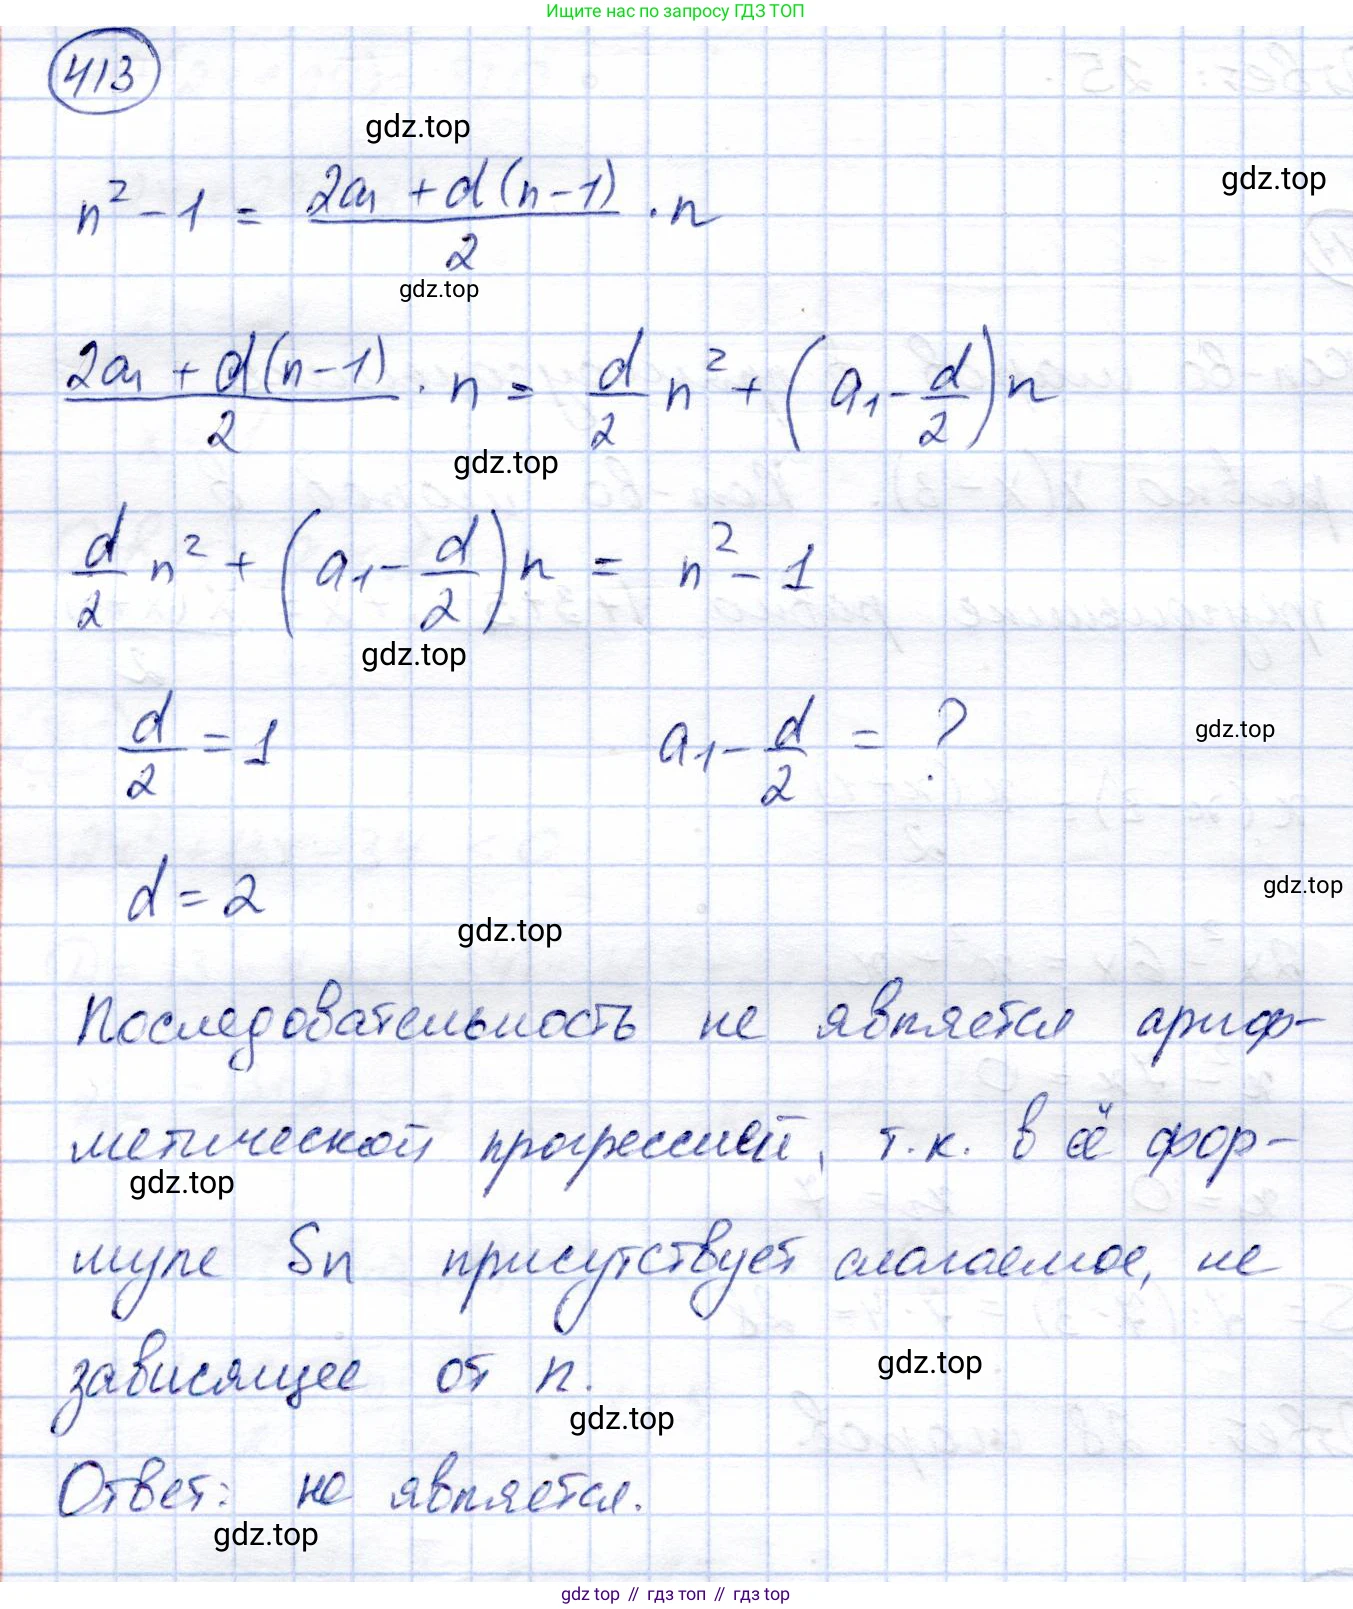 Ищите нас по запросу ГДЗ ТОП
413
gdz.top
gdz.top
n² - 1 = (2a₁ + d(n-1))/2 · n
gdz.top
(2a₁ + d(n-1))/2 · n = d/2 n² + (a₁ - d/2)n
gdz.top
d/2 n² + (a₁ - d/2)n = n² - 1
gdz.top
d/2 = 1 a₁ - d/2 = ?
gdz.top
d = 2
gdz.top
gdz.top
Последовательность не является ариф-
метической прогрессией, т.к. в её фор-
gdz.top
муле Sn присутствует слагаемое, не
зависящее от n.
gdz.top
gdz.top
Ответ: не является.
gdz.top
gdz top // гдз топ // гдз top